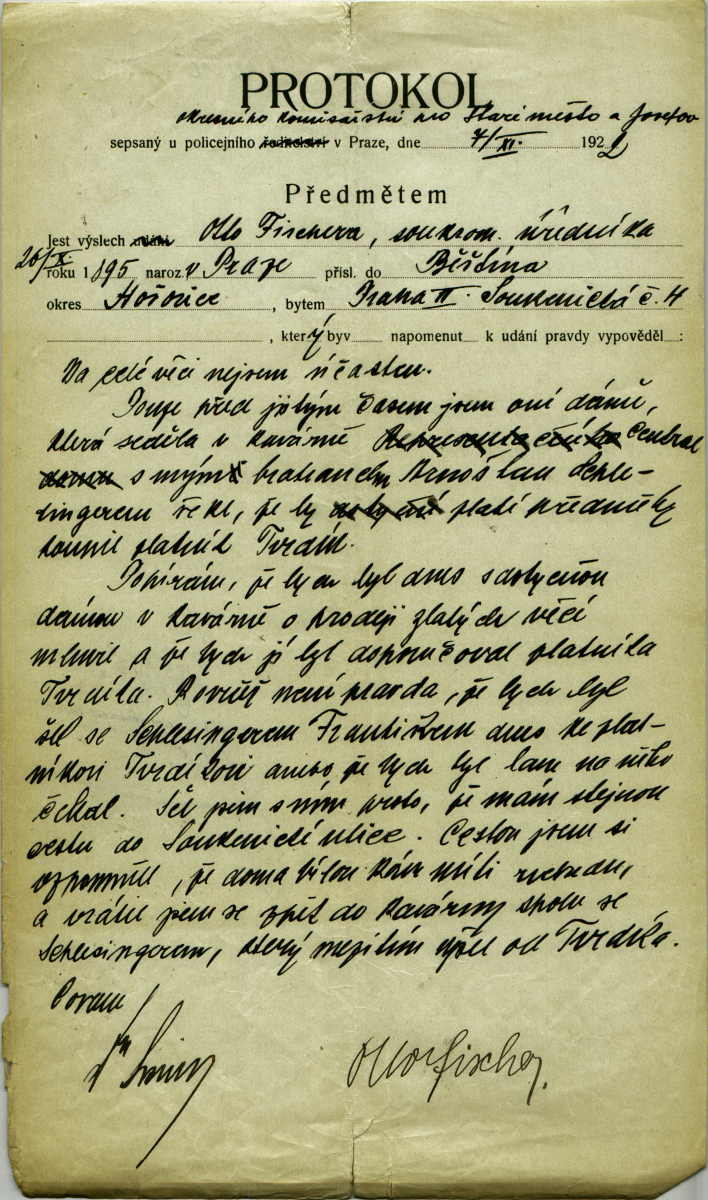 PROTOKOL
okresního komisařství pro Staré město a Josefov
sepsaný u policejního ředitelství v Praze, dne 4/XI. 1922
Předmětem
jest výslech udání Otto Fischera, soukrom. úředníka
26/X. roku 1895 naroz. v Praze přísl. do Běština
okres Hořovice, bytem Praha II. Soukenická č. 4
, který byv napomenut k udání pravdy vypověděl :
Na celé věci nejsem účasten.
Pouze před jistým časem jsem oné dámě,
která seděla v kavárně Representačního Central
domu s mým bratrancem Arnoštem Schle-
singerem řekl, že by zlaté předměty
koupil zlatník Tvrdík.
Popírám, že bych byl dnes s dotyčnou
dámou v kavárně o prodeji zlatých věcí
mluvil a že bych jí byl doporučoval zlatníka
Tvrdíka. Rovněž není pravda, že bych byl
šel se Schlesingerem Františkem dnes ke zlat-
níkovi Tvrdíkovi anebo že bych byl tam na něho
čekal. Šel jsem s ním proto, že mám stejnou
cestu do Soukenické ulice. Cestou jsem si
vzpomněl, že doma bílou kávu míti nebudu,
a vrátil jsem se zpět do kavárny spolu se
Schlesingerem, který mezitím vyšel od Tvrdíka.
Coram
Otto Fischer.